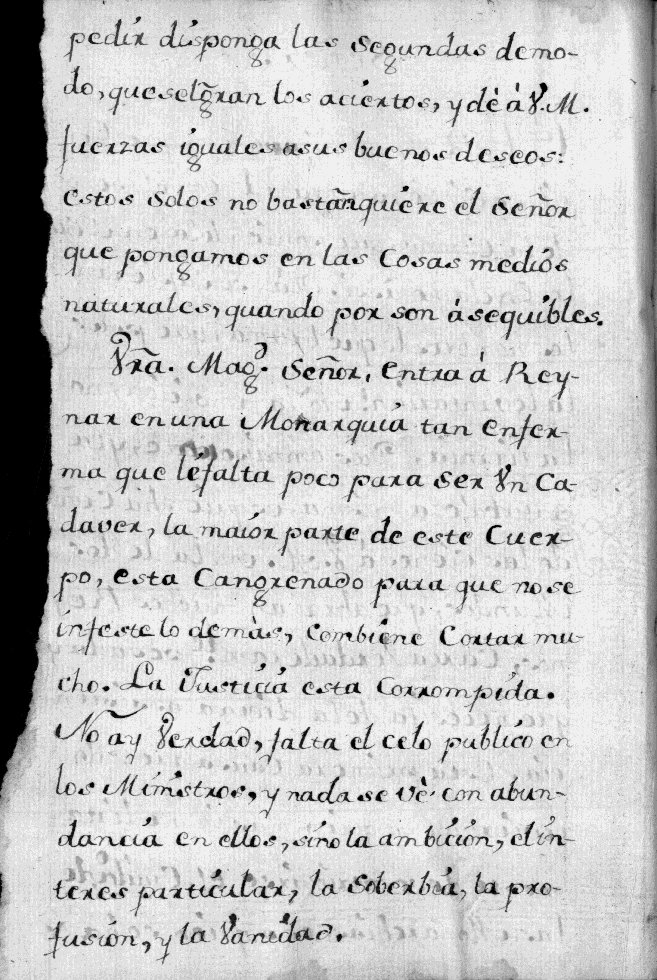 pedir disponga las segundas demo-
do, que selg̃ran los aciertos, y dè à V. M.
fuerzas iguales asus buenos deseos:
estos solos no bastan̄quiere el Señor
que pongamos en las Cosas medios
naturales, quando por son àsequibles.
Vr̃a. Mag.ᵈ Señor, entra à Rey-
nar en una Monarquia tan enfer-
ma que lefalta poco para ser Vn Ca-
daver, la maior parte de este Cuer-
po, esta Cangrenado para que no se
infeste lo demàs, combiene Cortar mu-
cho. La Justicia esta corrompida.
No ay Verdad, falta el celo publico en
los Ministros, y nada se vè con abun-
dancia en ellos, sino la ambicion, elin-
teres particular, la soberbia, la pro-
fusion, y la Vanidad.